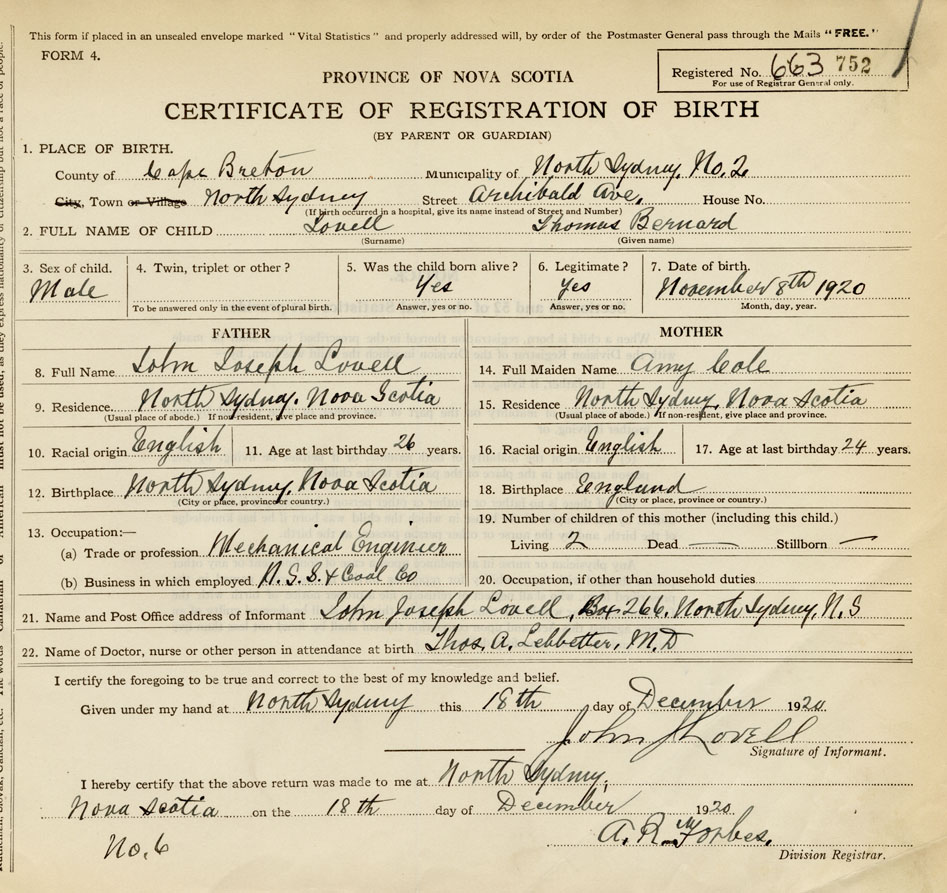 This form if placed in an unsealed envelope marked "Vital Statistics" and properly addressed will, by order of the Postmaster General pass through the Mails "FREE."
FORM 4.
Registered No. 663 752
For use of Registrar General only.
PROVINCE OF NOVA SCOTIA
CERTIFICATE OF REGISTRATION OF BIRTH
(BY PARENT OR GUARDIAN)
1. PLACE OF BIRTH.
County of Cape Breton Municipality of North Sydney, No. 2
City, Town or Village North Sydney Street Archibald Ave. House No.
(If birth occurred in a hospital, give its name instead of Street and Number)
2. FULL NAME OF CHILD Lovell Thomas Bernard
(Surname) (Given name)
3. Sex of child. 4. Twin, triplet or other? 5. Was the child born alive? 6. Legitimate? 7. Date of birth.
Male Yes Yes November 8th 1920
To be answered only in the event of plural birth. Answer, yes or no. Answer, yes or no. Month, day, year.
FATHER MOTHER
8. Full Name John Joseph Lovell 14. Full Maiden Name Amy Cole
9. Residence. North Sydney. Nova Scotia 15. Residence North Sydney, Nova Scotia
(Usual place of abode.) If non-resident, give place and province. (Usual place of abode.) If non-resident, give place and province.
10. Racial origin English 11. Age at last birthday 26 years. 16. Racial origin English 17. Age at last birthday 24 years.
12. Birthplace North Sydney, Nova Scotia 18. Birthplace England
(City or place, province or country.) (City or place, province or country.)
13. Occupation:— 19. Number of children of this mother (including this child.)
(a) Trade or profession Mechanical Engineer Living 2 Dead — Stillborn —
(b) Business in which employed N.S.S. & Coal Co 20. Occupation, if other than household duties
21. Name and Post Office address of Informant John Joseph Lovell, Box 266. North Sydney, N.S
22. Name of Doctor, nurse or other person in attendance at birth Thos. A. Lebbetter, M.D
I certify the foregoing to be true and correct to the best of my knowledge and belief.
Given under my hand at North Sydney this 18th day of December 1920
John J Lovell
Signature of Informant.
I hereby certify that the above return was made to me at North Sydney.
Nova Scotia on the 18th day of December 1920
No. 6 A. R. Mc Forbes.
Division Registrar.